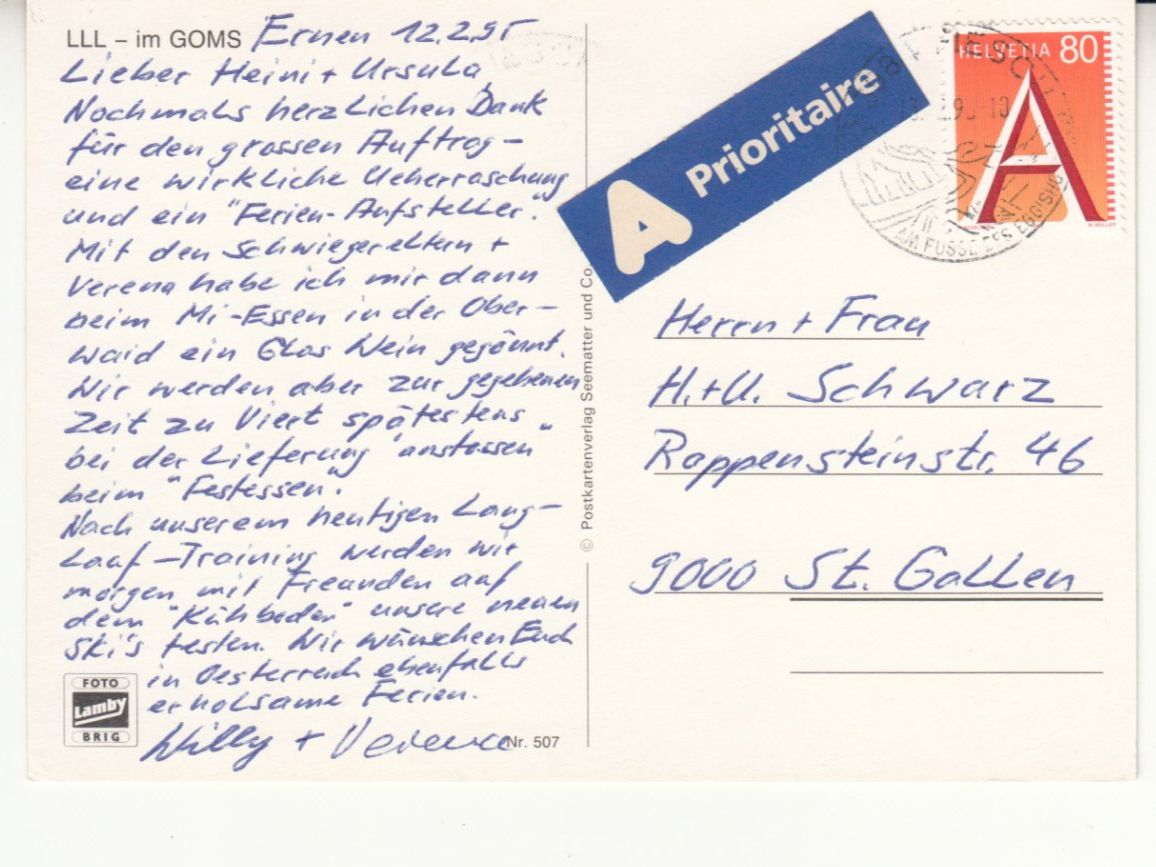 LLL – im GOMS Ernen 12.2.95
Lieber Heini + Ursula
Nochmals herzlichen Dank
für den grossen Auftrag –
eine wirkliche Ueberraschung
und ein "Ferien-Aufsteller".
Mit den Schwiegereltern +
Verena habe ich mir dann
beim Mi-Essen in der Ober-
waid ein Glas Wein gegönnt.
Wir werden aber zur gegebenen
Zeit zu Viert spätestens
bei der Lieferung "anstossen"
beim "Festessen".
Nach unserem heutigen Lang-
Lauf-Training werden wir
morgen mit Freunden auf
dem "Kühboden" unsere neuen
Ski's testen. Wir wünschen Euch
in Oesterreich ebenfalls
erholsame Ferien.
Willy + Verena
FOTO
Lamby
BRIG
Nr. 507
© Postkartenverlag Seematter und Co.
A Prioritaire
HELVETIA 80
A
AM FUSSE DES EGGISHO
Herrn + Frau
H.+U. Schwarz
Rappensteinstr. 46
9000 St. Gallen